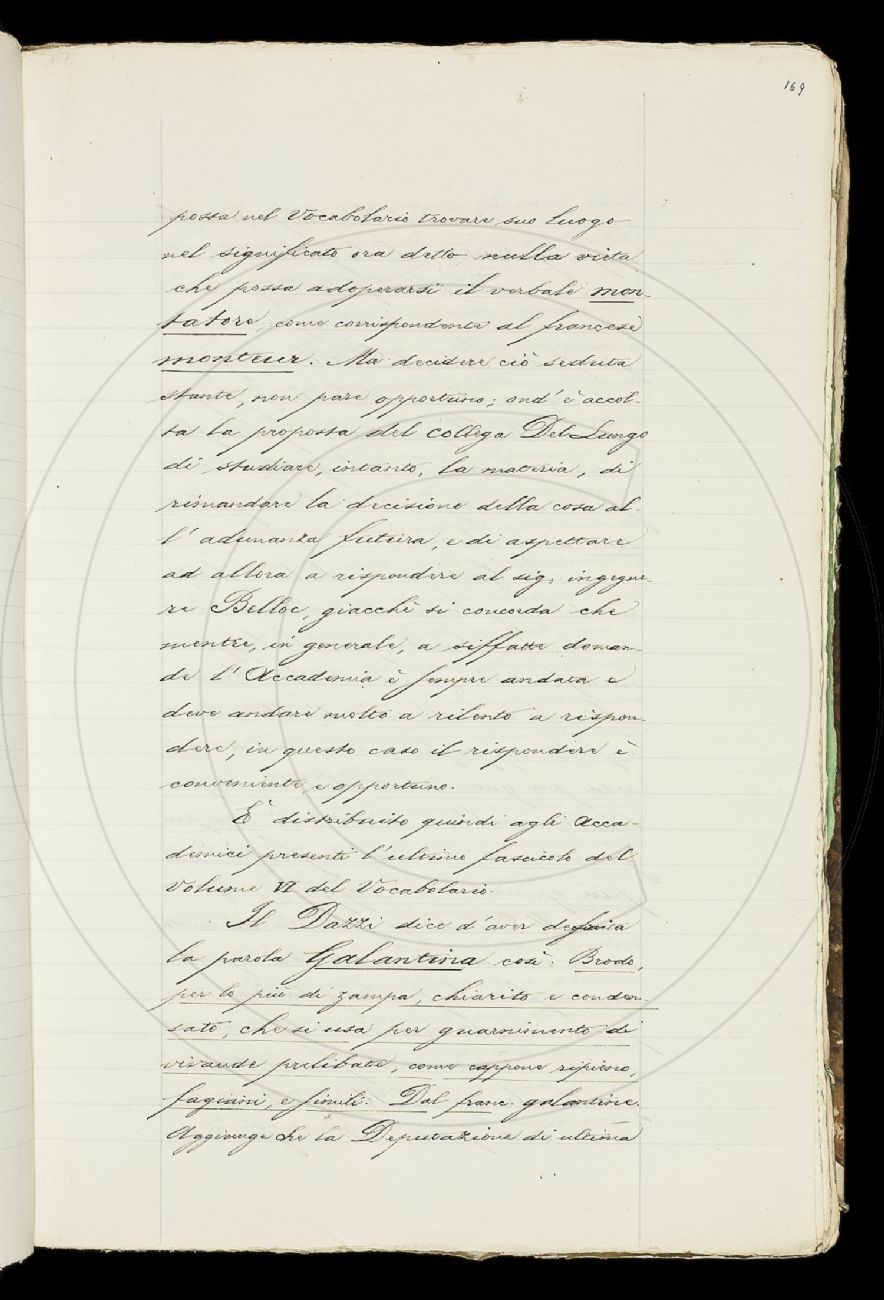 169
possa nel Vocabolario trovare suo luogo
nel significato ora detto, nulla vieta
che possa adoperarsi il verbale mon-
tatore, come corrispondente al francese
monteur. Ma decidere ciò seduta
stante, non pare opportuno; ond' è accol-
ta la proposta del collega Del Lungo
di studiare, intanto, la materia, di
rimandare la decisione della cosa al-
l' adunanza futura, e di aspettare
ad allora a rispondere al sig. ingegne-
re Belloc, giacchè si concorda che
mentre, in generale, a siffatte doman-
de l' Accademia è sempre andata e
deve andare molto a rilento a rispon-
dere, in questo caso il rispondere è
conveniente e opportuno.
È distribuito quindi agli Acca-
demici presenti l'ultimo fascicolo del
Volume VI del Vocabolario.
Il Dazzi dice d'aver definita
la parola Galantina così: Brodo,
per lo più di zampa, chiarito e conden-
sato, che si usa per guarnimento di
vivande prelibate, come cappone ripieno,
fagiani, e simili. Dal franc. galantine.
Aggiunge che la Deputazione di ultima